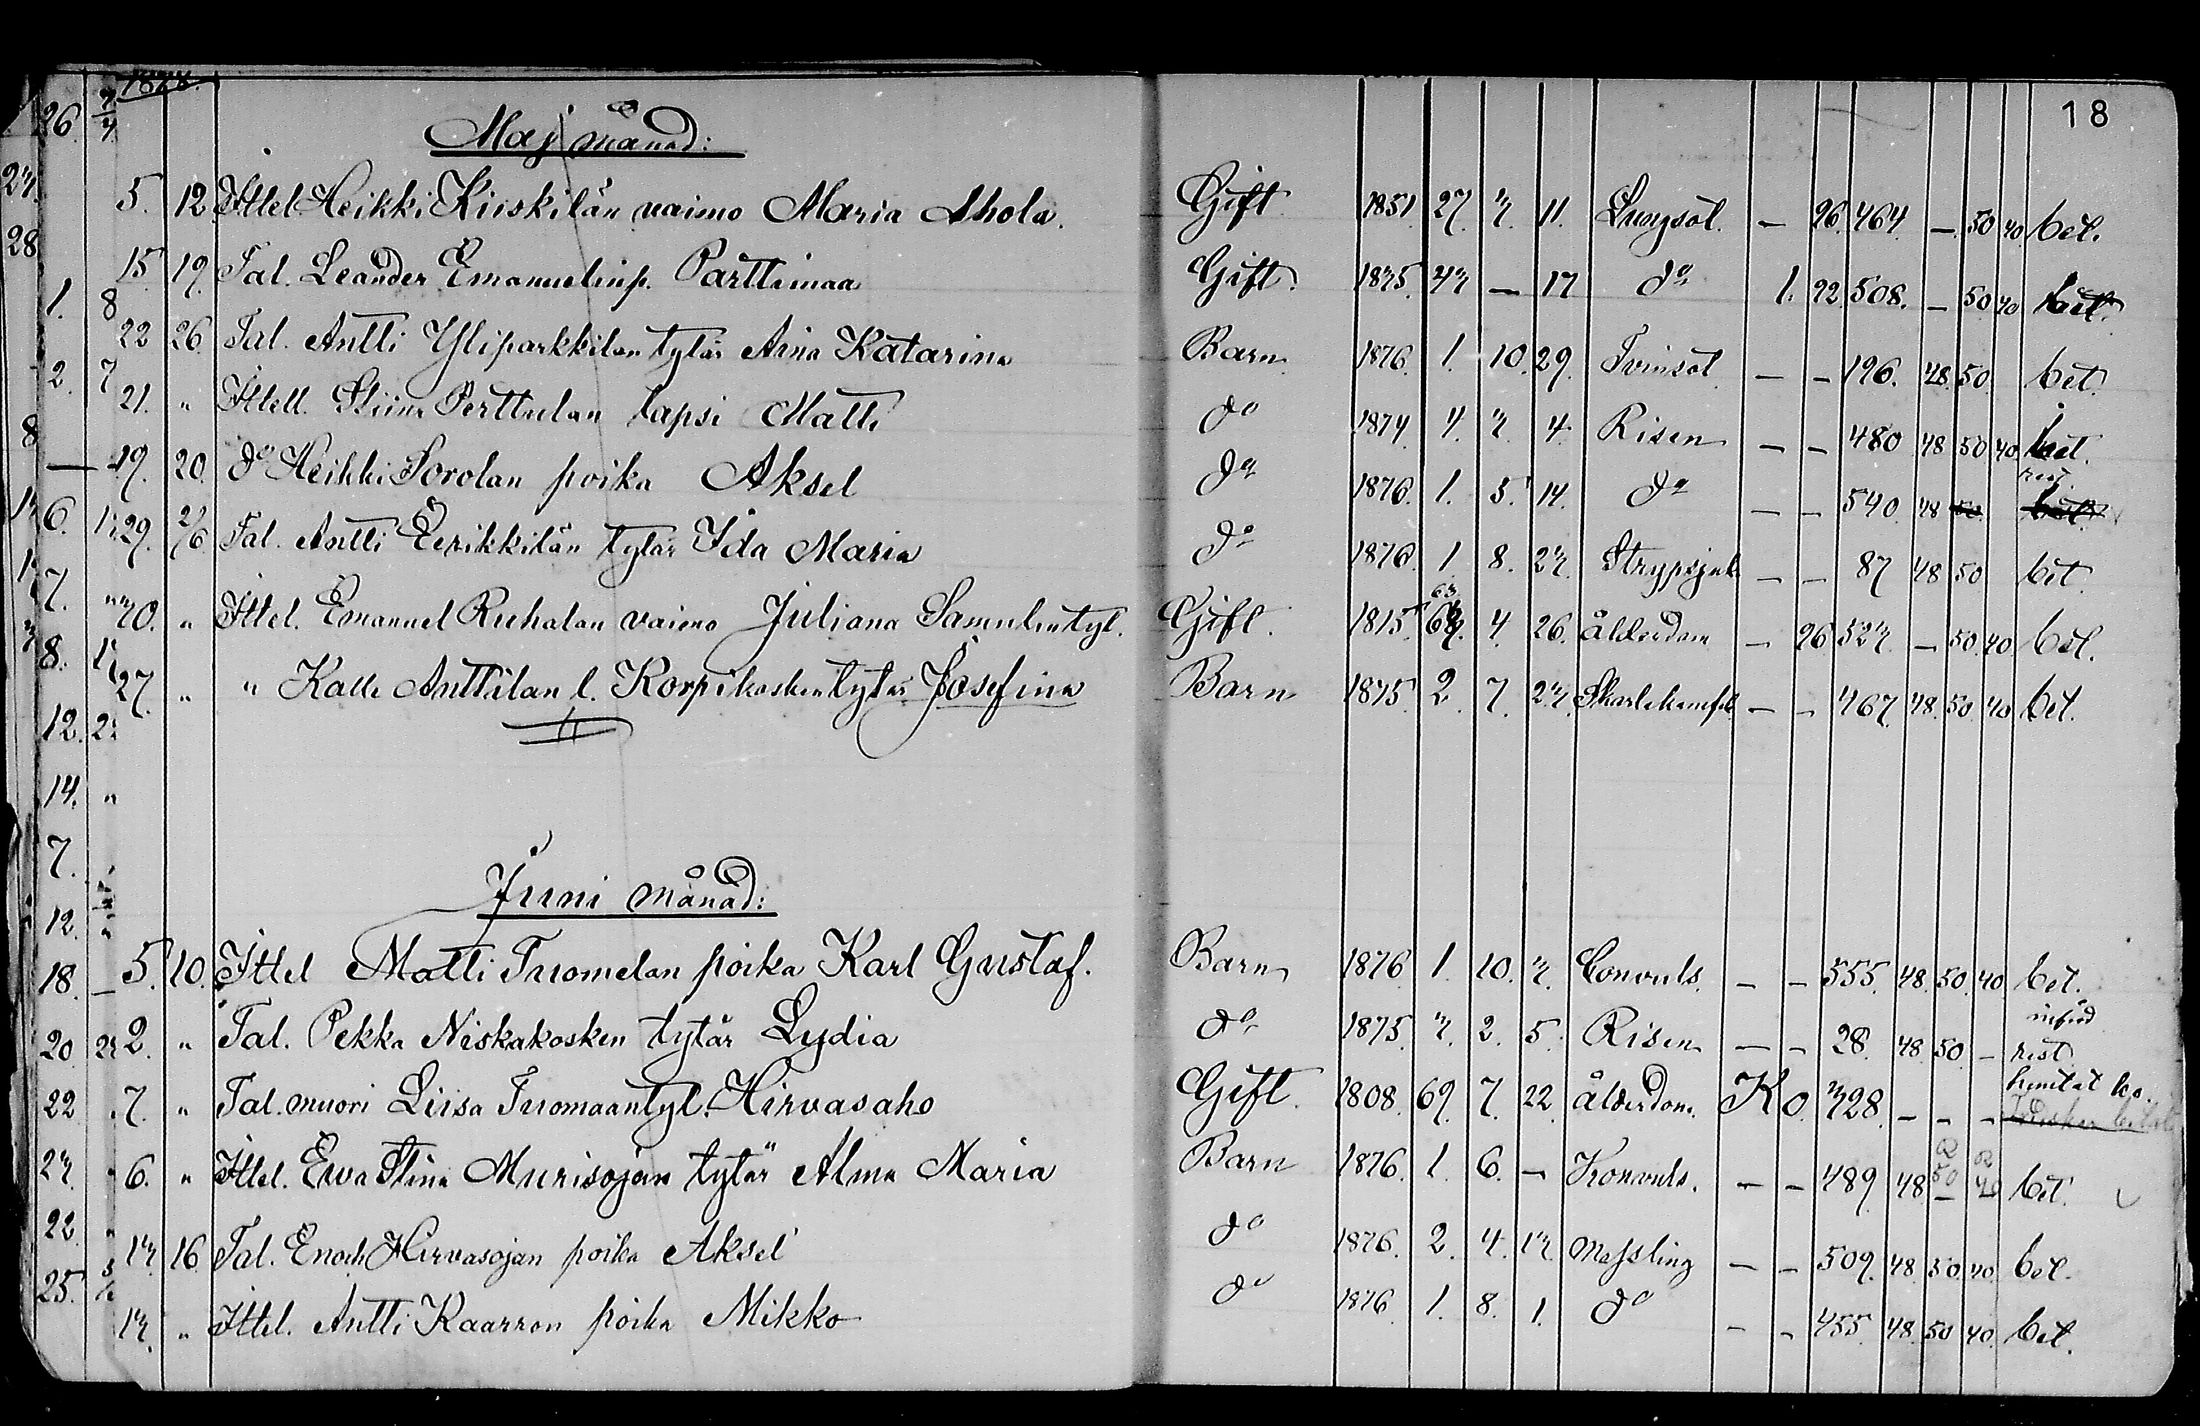 18
1878.
Maj månad:
5. 12 Ittel Heikki Kiiskilän vaimo Maria Ahola. Gift 1851 27. 7. 11. Lungsot. — 26. 464. — 50 40 bet.
15 19. Tal. Leander Emanuelinp. Parttimaa Gift. 1835. 47 — 17 do 1. 22 508. — 50 40 bet.
22 26. Tal. Antti Yliparkkilan tytär Aina Katarina Barn 1876. 1. 10. 29. Tvinsot — — 196. 48. 50. bet.
21. " Ittell. Stiina Perttulan lapsi Matti do 1874 4. 7. 4. Risen — — 480 48 50 40 bet.
— 19. 20. do Heikki Sorolan poika Aksel do 1876. 1. 5. 14. do — — 540. 48 50. rest bet.
29. 2/6 Tal. Antti Eerikkilän tytär Ida Maria do 1876. 1 8. 27. Strypsjuk — — 87 48 50 bet.
20. " Ittel. Emanuel Ruhalan vaimo Juliana Samulintyt. Gift. 1815. 63 4 26. ålderdom — 26 527. — 50. 40. bet.
27. " " Kalle Anttilan l. Korpikosken tytär Josefina Barn 1875 2. 7. 27. Skarlakansfeb — — 467. 48. 50. 40 bet.
Juni månad:
5. 10. Ittel Matti Tuomelan poika Karl Gustaf. Barn 1876 1. 10. 7. Convuls. — — 555. 48. 50. 40 bet.
2. " Tal. Pekka Niskakosken tytär Lydia do 1875. 7. 2. 5. Risen — — 28. 48. 50 — rest
7. " Tal. muori Liisa Tuomaantyt. Hirvasaho Gift. 1808. 69. 7. 22 ålderdom. K 0. 728. — — —
6. " Ittel. Ewa Stina Murisojan tytär Alma Maria Barn 1876. 1. 6. — Konvuls. — — 489. 48 50 40 bet.
17. 16. Tal. Enoch Hirvasojan poika Aksel do 1876. 2. 4. 17. Messling — — 509. 48. 50. 40. bet.
17. " Ittel. Antti Kaarron poika Mikko do 1876 1. 8. 1. do — — 455. 48. 50 40. bet.